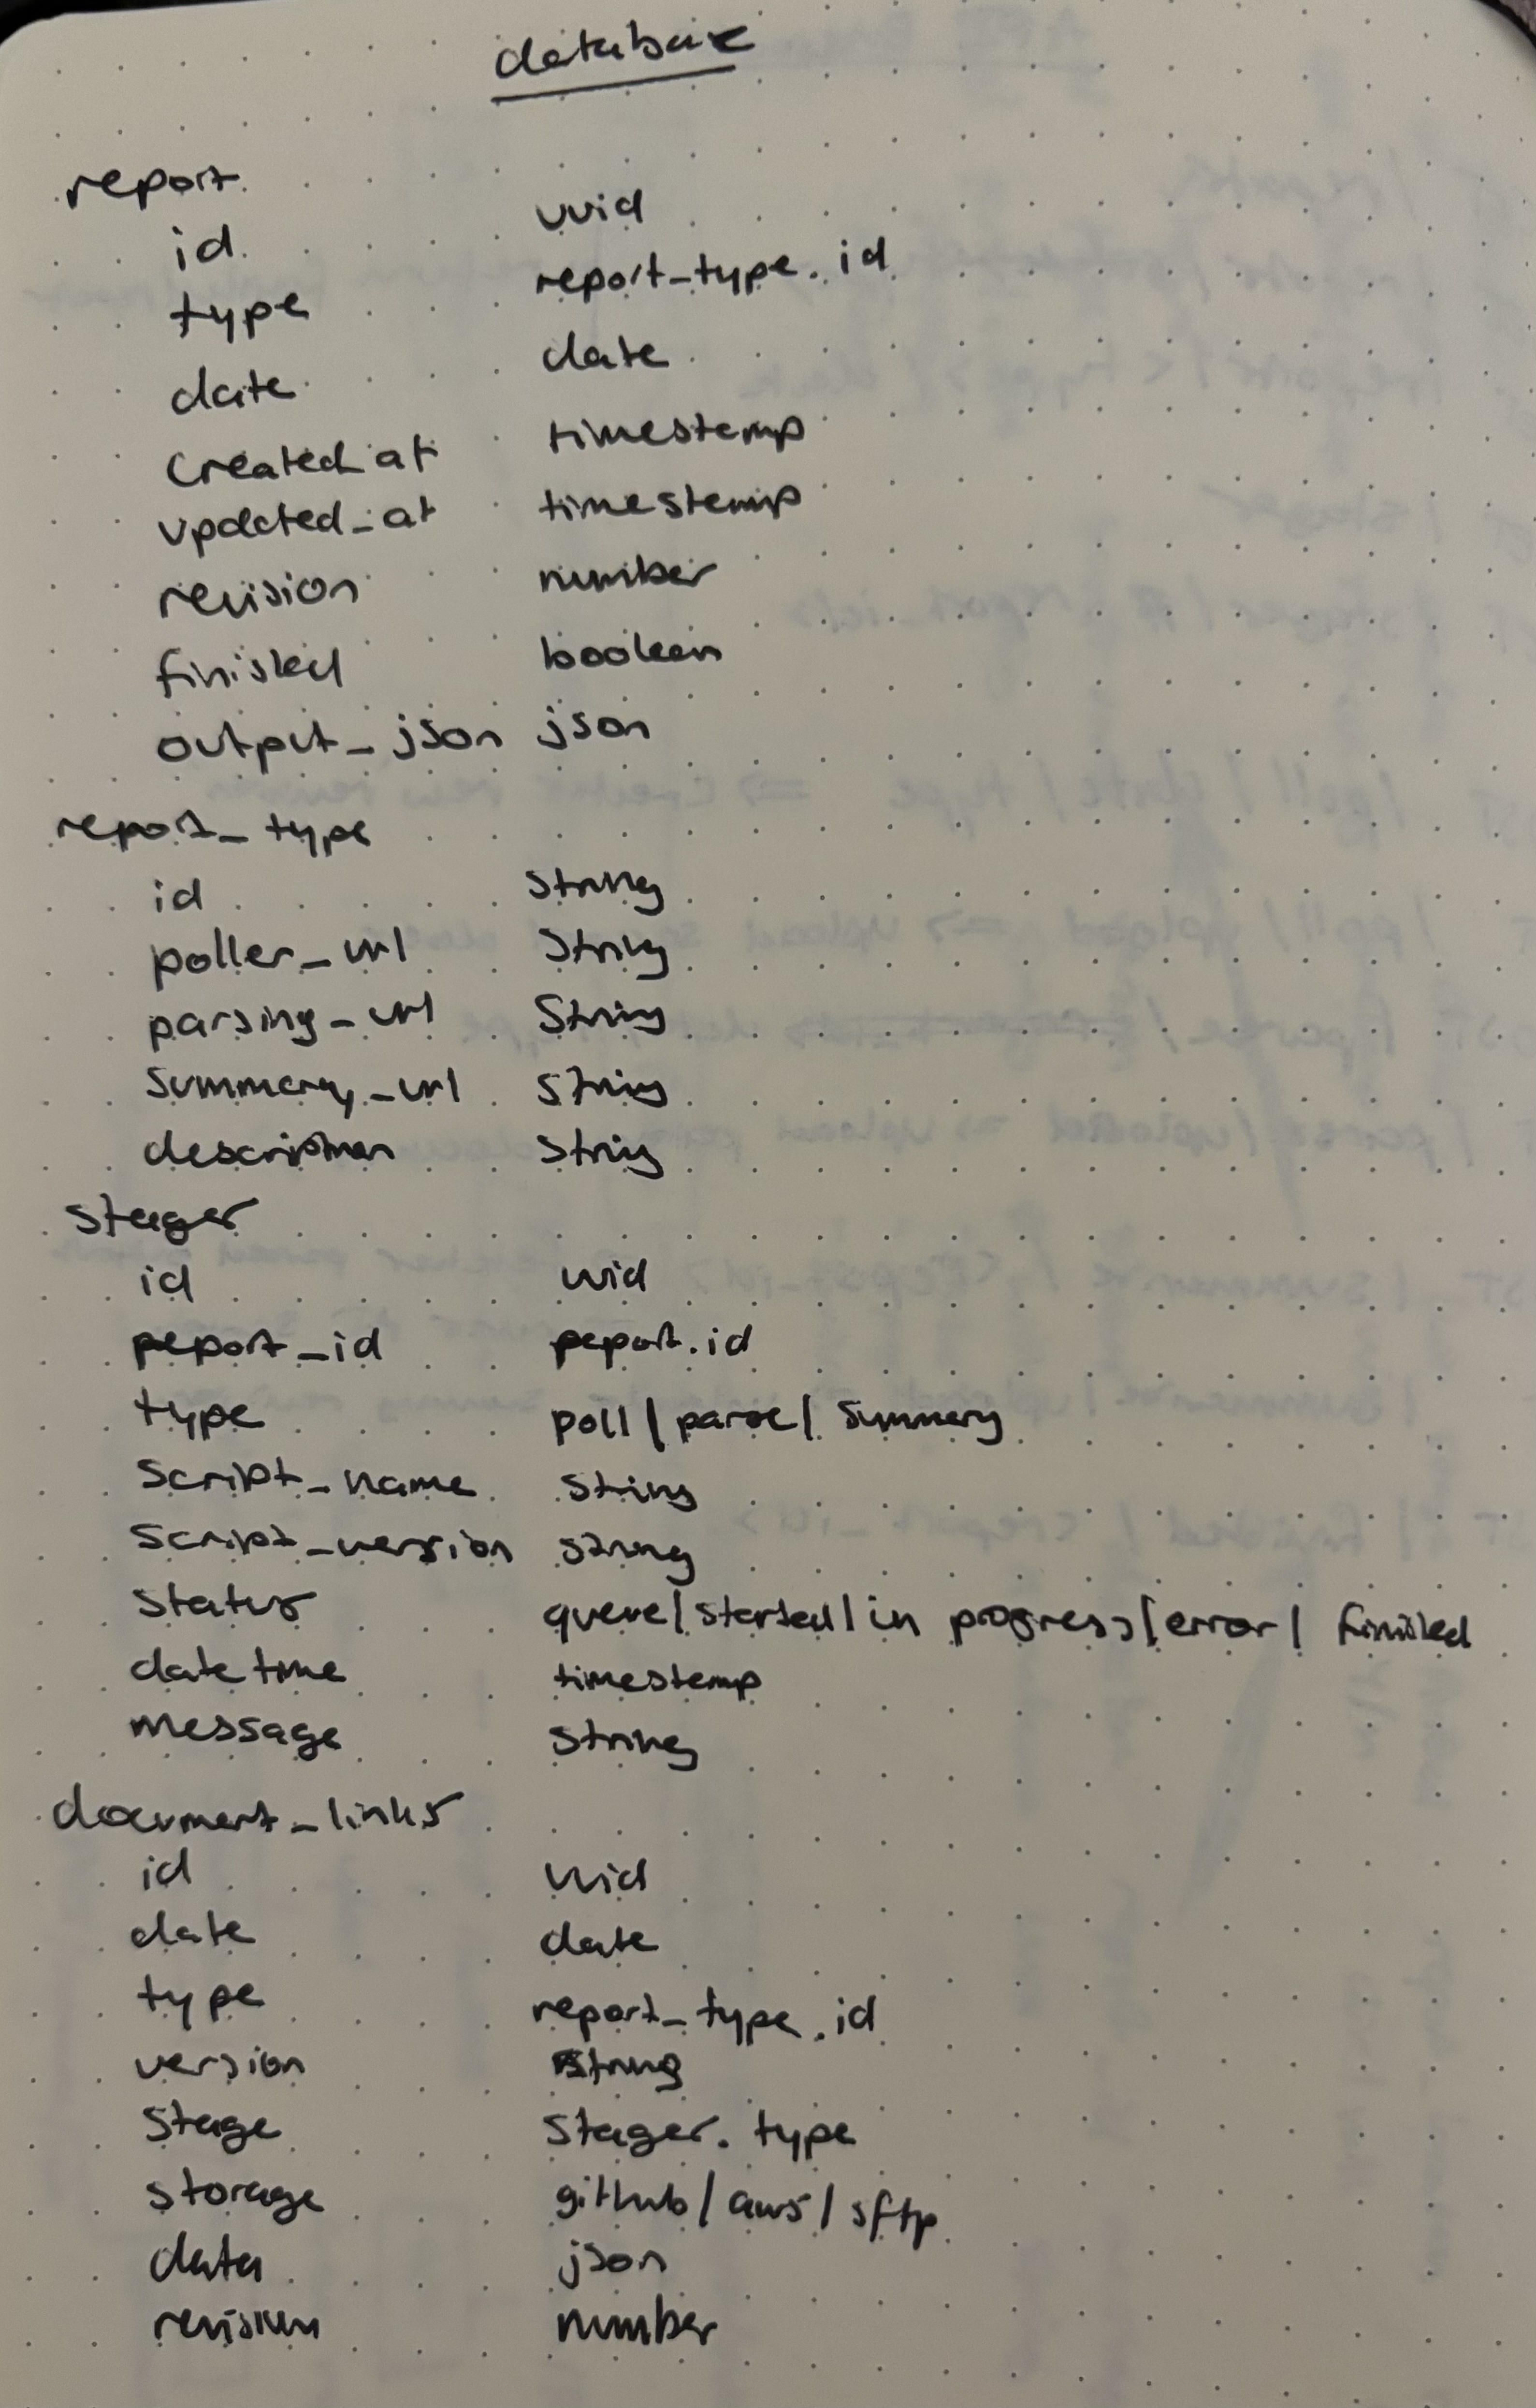 database
report
id uuid
type report_type.id
date date
created_at timestemp
updated_at timestemp
revision number
finished boolean
output_json json
report_type
id string
poller_url string
parsing_url string
summary_url string
description string
stager
id uuid
report_id report.id
type poll/parse/summary
script_name string
script_version string
status queue/started/in progress/error/finished
datetime timestemp
message string
document_links
id uuid
date date
type report_type.id
version string
stage stager.type
storage github/aws/sftp
data json
revision number